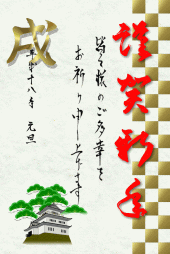 謹賀新年
皆々様のご多幸を
お祈り申し上げます
戌
平成十八年 元旦